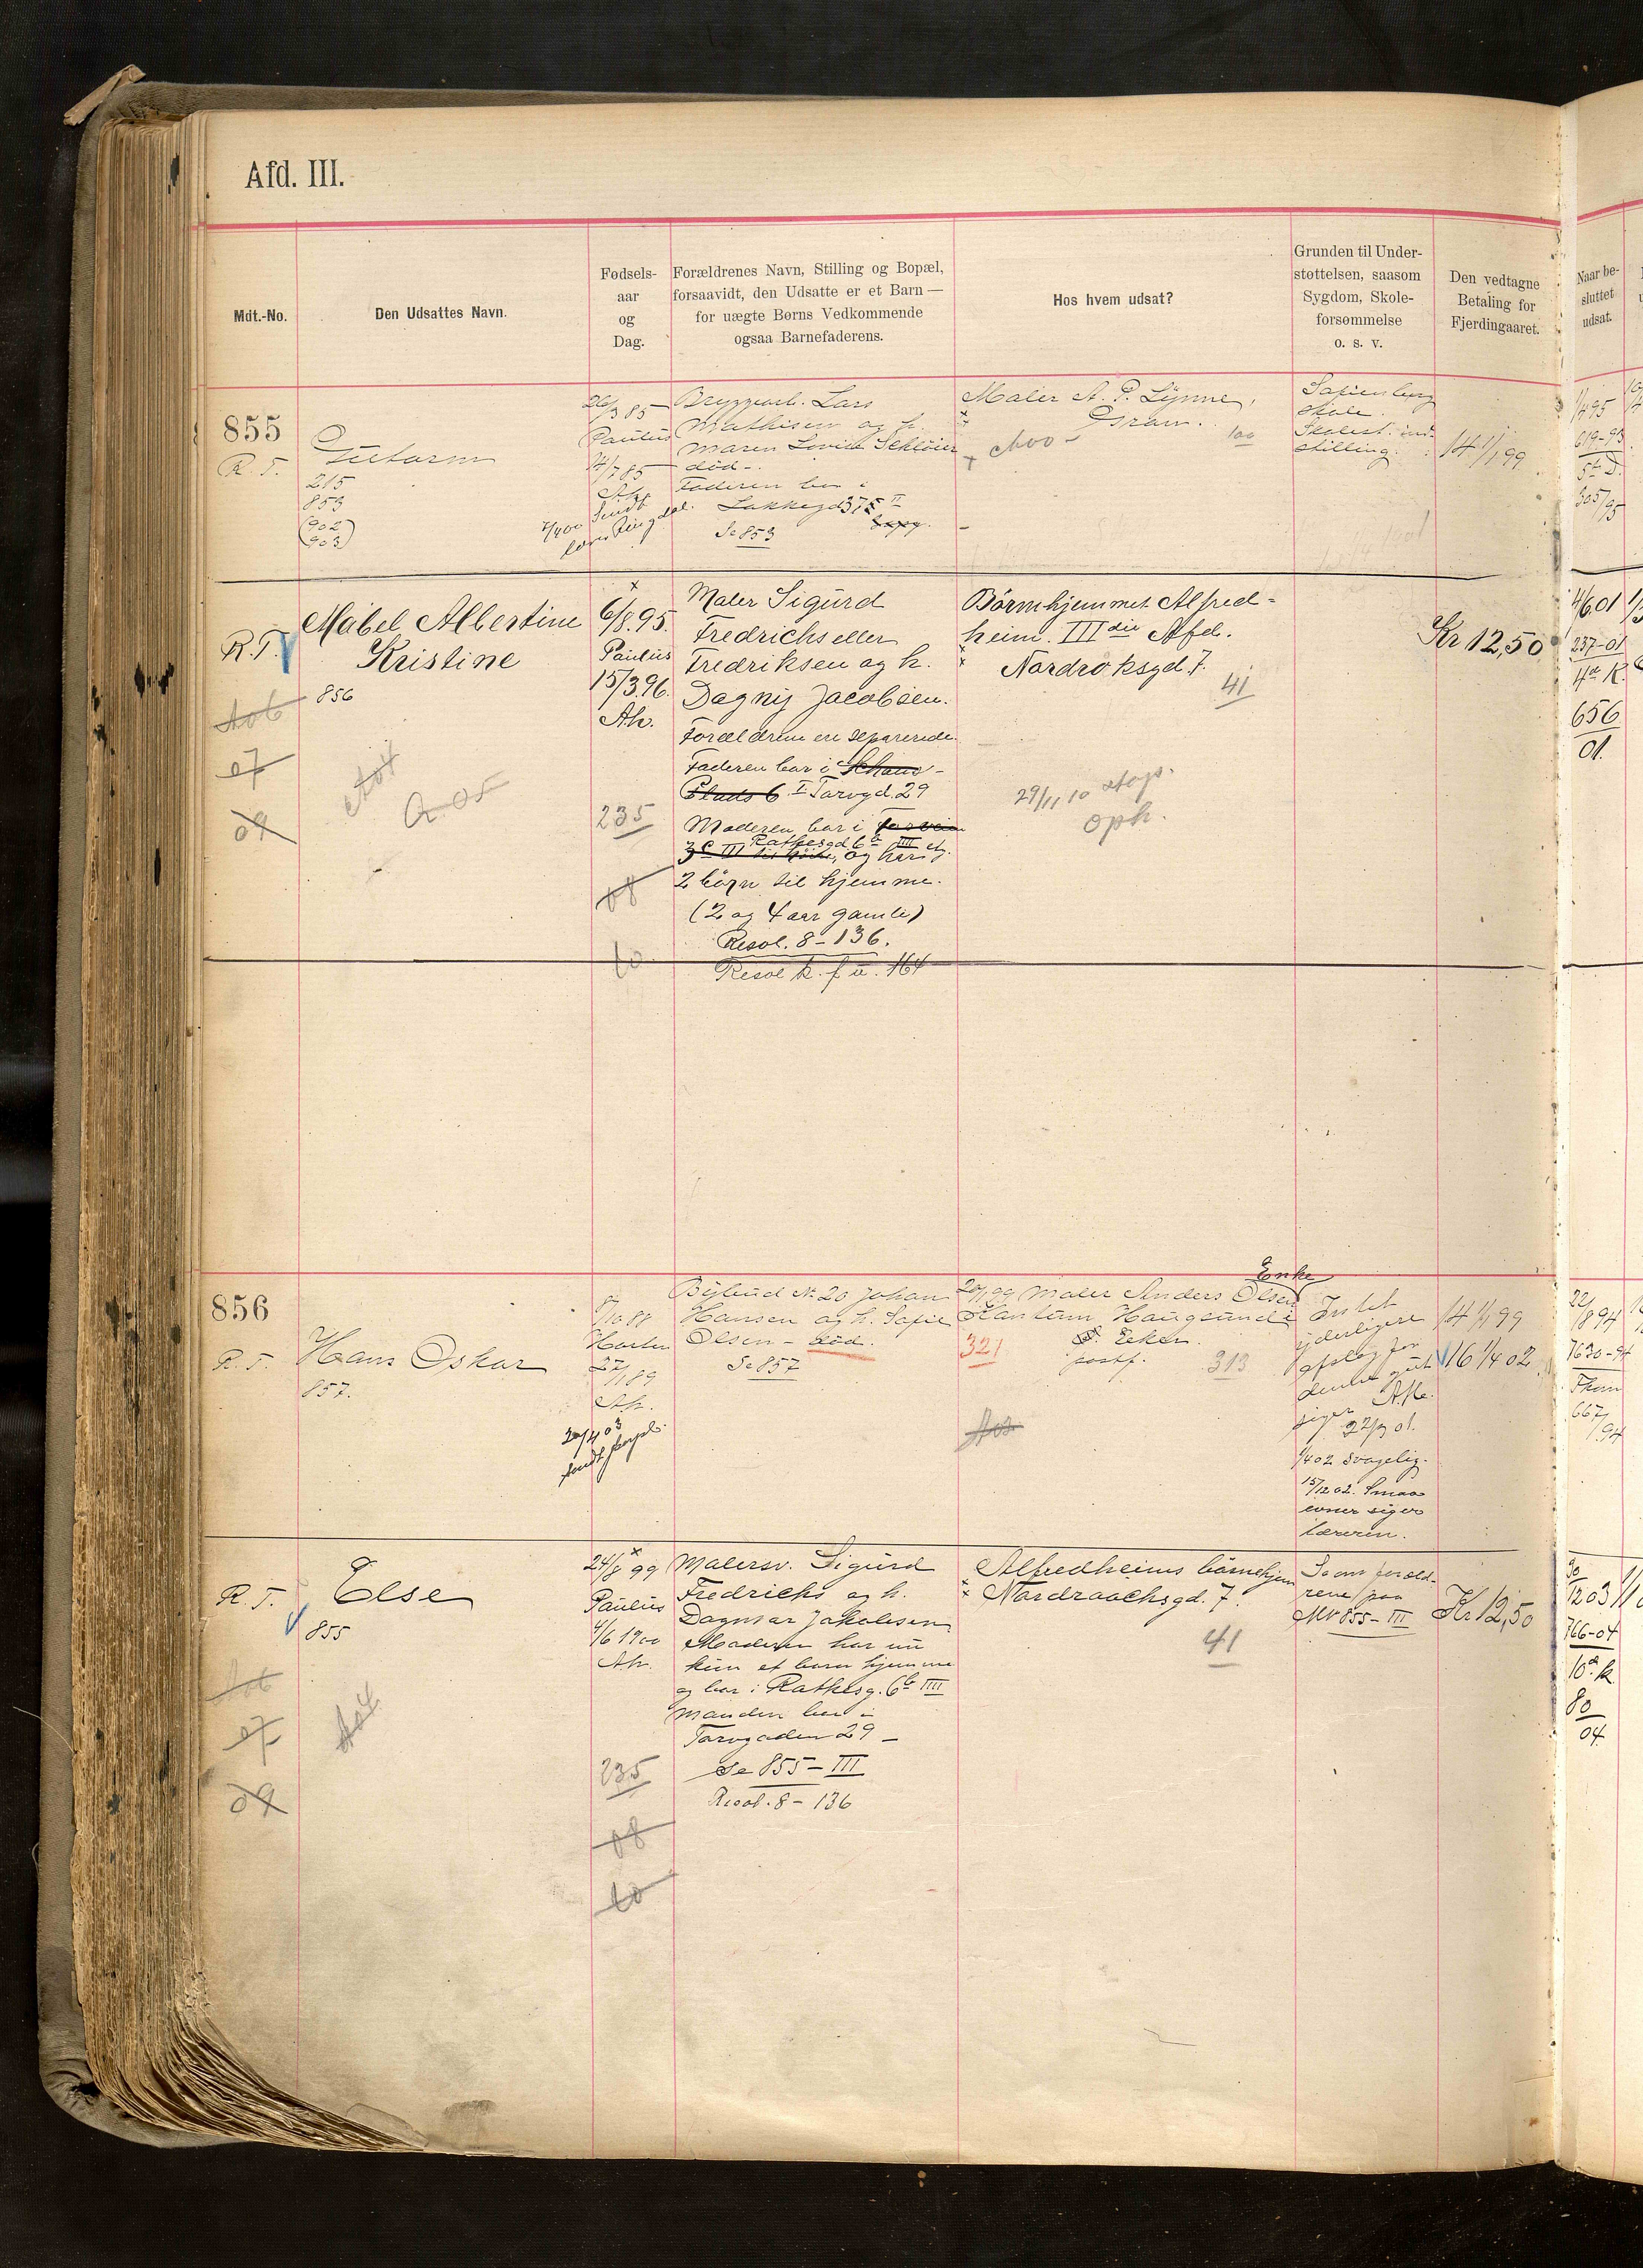 Afd. III.
Mdt.-No.
Den Udsattes Navn.
Fødsels-
aar
og
Dag.
Forældrenes Navn, Stilling og Bopæl,
forsaavidt, den Udsatte er et Barn —
for uægte Børns Vedkommende
ogsaa Barnefaderens.
Hos hvem udsat?
Grunden til Under-
støttelsen, saasom
Sygdom, Skole-
forsømmelse
o. s. v.
Den vedtagne
Betaling for
Fjerdingaaret.
Naar be-
sluttet
udsat.
855
R. T.
Guttorm
215
853
(902
903)
26/3 85
Paulus
14/7 85
Ak.
Bryggearb. Lars
Mathisen og h.
Maren Lovise Schlöier
død -.
Faderen bor i
Lakkegd 37 II
Se 853
Maler A. P. Lynne,
Gran.
100
Sofienberg
skole.
Skolest. ind-
stilling.
14 1/1 99
1/4 95
619-95
5te D.
305/95
R. T.
Mabel Albertine
Kristine
856
A06
07
09
A 05
6/8.95.
Paulus
15/3.96.
Ak.
235
08
10
Maler Sigurd
Fredrichs eller
Fredriksen og h.
Dagny Jacobsen.
Forældrene ere separerede.
Faderen bor i Schaus-
Plads 6 I Torvgd. 29
Moderen bor i
Rathesgd 6b IIII et.
og har
2 børn til hjemme.
(2 og 4 aar gamle)
Resol. 8 - 136.
Resol k. f u. 164
Börnehjemmet Alfred-
heim. IIIdie Afd.
Nordraksgd. 7.
41
29/11 10
oph.
Kr 12,50
4/6 01
237-01
4de K.
656
01.
856
R. T.
Hans Oskar
857.
8/10 88
27/1 89
Ak.
20/4 03
Bybud № 20 Johan
Hansen og h. Sofie
Olsen - død.
Se 857
Enke
20/1 99 Maler Anders Olsen
Haugsund i
Eker.
postf.
321
313
Intet
yderligere
afslag for
denne gut
siger
22/3 01.
1/4 02 svagelig.
15/12 02. Smaa
evner siger
læreren.
14 1/1 99
16 1/4 02
22/8 94
1630-94
667/94
R. T.
Else
855
A06
07
09
24/8 99
Paulus
4/6 1900
Ak.
235
08
10
Malersv. Sigurd
Fredrichs og h.
Dagmar Jakobsen
Moderen har nu
kun et barn hjemme
og bor i Rathesg. 6b IIII
Manden bor i
Torvgaden 29 -
Se 855 - III
Resol. 8 - 136
Alfredheims börnehjem
Nordraachsgd. 7.
41
Som foræld-
rene paa
MN 855 - III
Kr 12,50
30/12 03
766-04
10de k
80
04